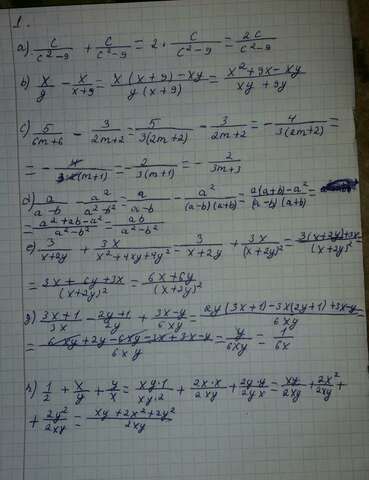 1.
a) c/(c²-9) + c/(c²-9) = 2 · c/(c²-9) = 2c/(c²-9)
b) x/y - x/(x+9) = (x(x+9)-xy)/(y(x+9)) = (x²+9x-xy)/(xy+9y)
c) 5/(6m+6) - 3/(2m+2) = 5/(3(2m+2)) - 3/(2m+2) = -4/(3(2m+2)) =
= -4/(3·2(m+1)) = 2/(3(m+1)) = -2/(3m+3)
d) a/(a-b) - a²/(a²-b²) = a/(a-b) - a²/((a-b)(a+b)) = (a(a+b)-a²)/((a-b)(a+b)) =
= (a²+ab-a²)/(a²-b²) = ab/(a²-b²)
e) 3/(x+2y) + 3x/(x²+4xy+4y²) = 3/(x+2y) + 3x/(x+2y)² = (3(x+2y)+3x)/(x+2y)² =
= (3x+6y+3x)/(x+2y)² = (6x+6y)/(x+2y)²
g) (3x+1)/3x - (2y+1)/2y + (3x-y)/6xy = (2y(3x+1)-3x(2y+1)+3x-y)/6xy =
= (6xy+2y-6xy-3x+3x-y)/6xy = y/6xy = 1/6x
h) 1/2 + x/y + y/x = (xy·1)/(xy·2) + (2x·x)/2xy + (2y·y)/2yx = xy/2xy + 2x²/2xy +
+ 2y²/2xy = (xy+2x²+2y²)/2xy